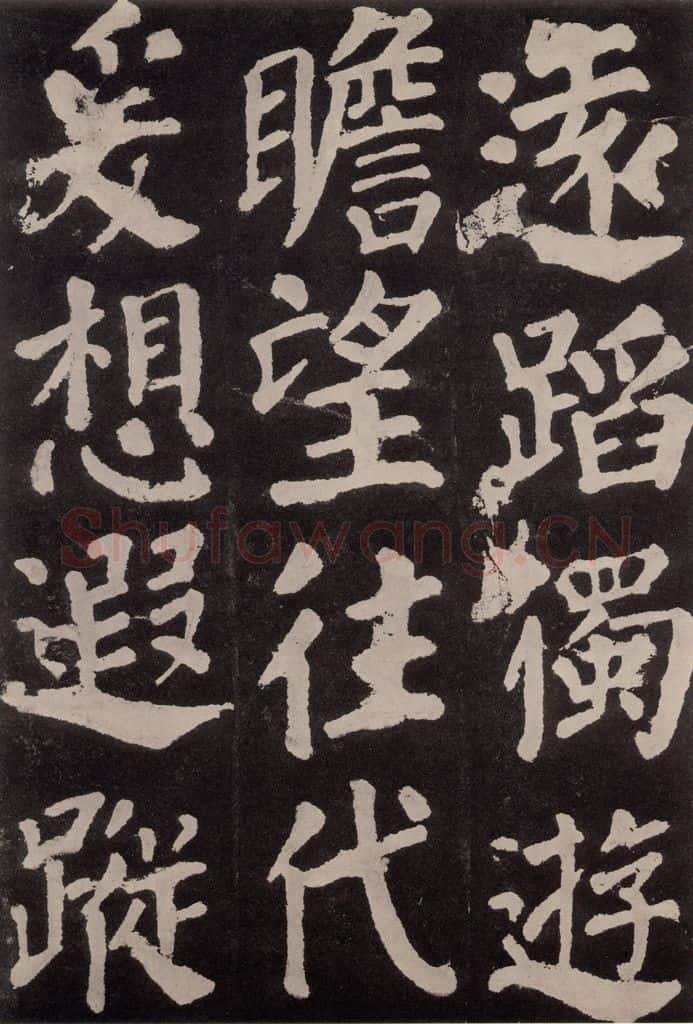 遠蹈獨遊
瞻望往代
爰想遐蹤
Shufawang.CN